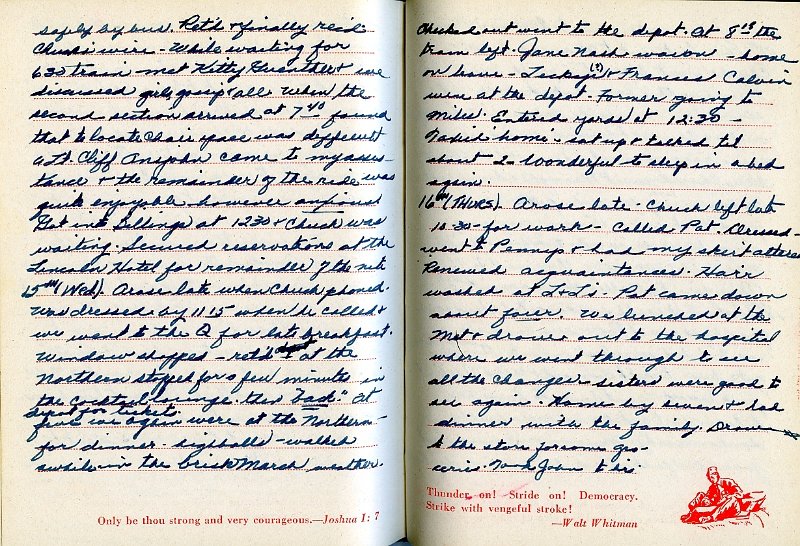 safely by bus. Ret'd & finally rec'd
Chuck's wire - While waiting for
6 30 train - met Kitty Guenther & we
discussed girls gossip & all. When the
second section arrived at 7 40 found
that to locate chair space was difficult
4th Cliff came to my assis-
tance & the remainder of the ride was
quite enjoyable however anxious
Got into Billings at 12 30 & Chuck was
waiting. Secured reservations at the
Lincoln Hotel for remainder of the nite
15th (Wed). Arose late when Chuck phoned.
Was dressed by 11 15 when he called &
we went to the Q for late breakfast.
Window shopped - ret'd at the
Northern stopped for a few minutes in
the Cocktail lounge. then back" At
depot for tickets
five we again were at the Northern
for dinner - highballs - walked
awhile in the brisk March weather.
Only be thou strong and very courageous.—Joshua 1: 7
Checked out went to the depot. At 8 15 the
train left. Jane Nash was on - home
on leave - (?) & Frances Calvin
were at the depot - Former going to
Miles. Entered yards at 12:30 -
Taxied home - sat up & talked til
about 2 - Wonderful to sleep in a bed
again.
16th (THURS). Arose late - Chuck left late
10 30 - for work - Called Pat. Dressed -
went to Penneys & had my skirt altered
Renewed acquaintances. Hair
washed at L & L's. Pat came down
about four. We lunched at the
Met & drove out to the hospital
where we went through to see
all the changes - sisters were good to
see again. Home by seven & had
dinner with the family. Drove
to the store for some gro-
ceries. Took John to his
Thunder on! Stride on! Democracy.
Strike with vengeful stroke!
—Walt Whitman